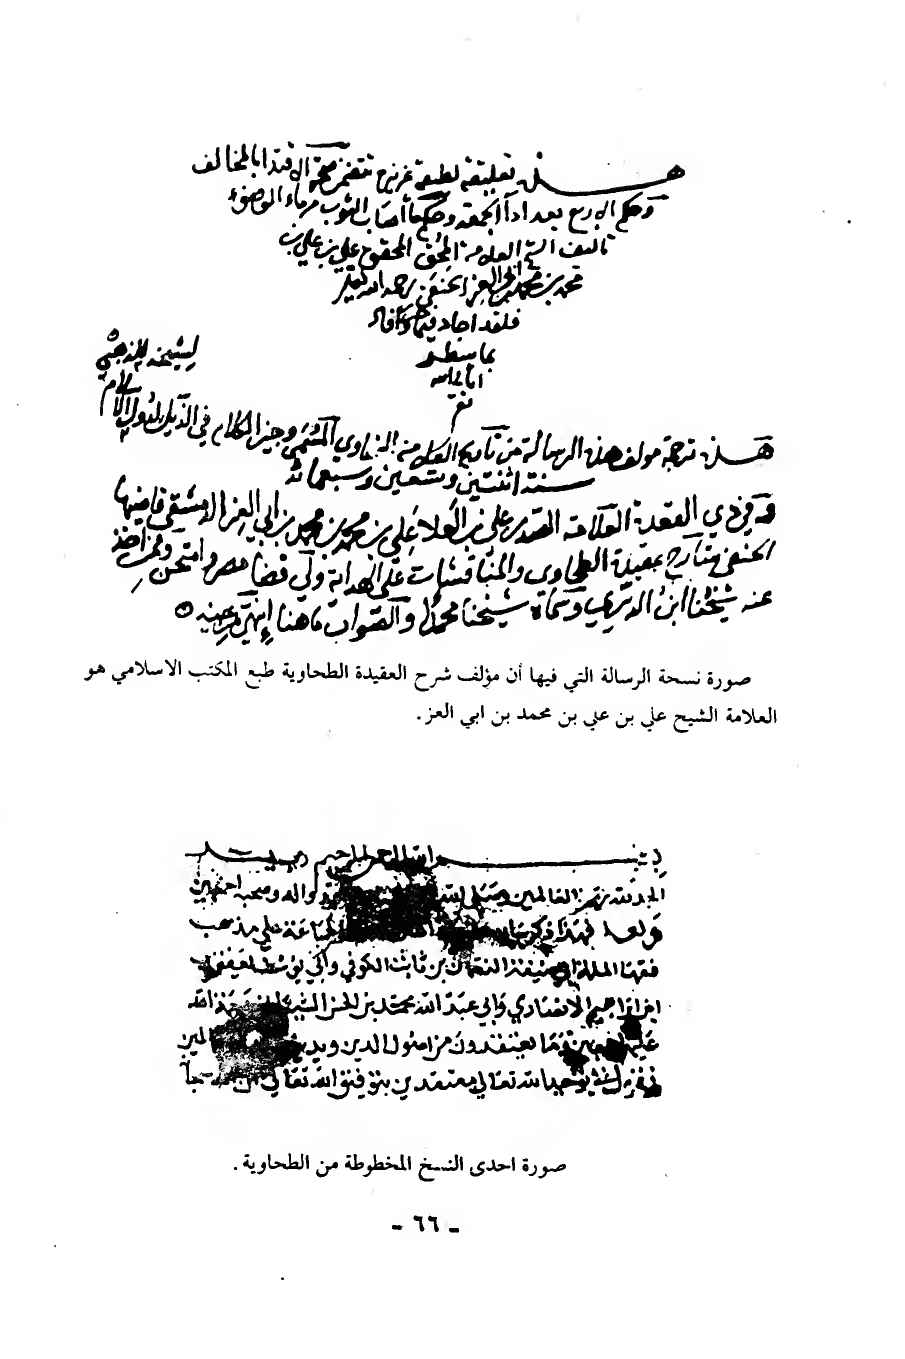 هذه تعليقة لطيفة عزيزة تتضمن صحة الاقتدا بالمخالف
وحكم الاربع بعد اداء الجمعة وحكم ما اصاب الثوب من ماء الوضوء
تاليف الشيخ العلامة المحقق علي بن علي بن
محمد بن محمد بن ابي العز الحنفي رحمه الله تعالى
فلقد اجاد فيها وافاد
بما سطر
لشيخه الذهبي
هذه ترجمة مولف هذه الرسالة من تاريخ العلامة السخاوي المسمى وجيز الكلام في الذيل لدول الاسلام
سنة اثنتين وتسعين وسبعمائة
وفي ذي القعدة العلامة الصدر علي بن العلا علي بن محمد بن محمد بن ابي العز الدمشقي قاضيها
الحنفي شارح عقيدة الطحاوي والمناقشات على الهداية ولي قضا مصر وامتحن وممن اخذ
عنه شيخنا ابن الديري وسماه شيخنا محمدا والصواب ما هنا انتهى
صورة نسحة الرسالة التي فيها أن مؤلف شرح العقيدة الطحاوية طبع المكتب الاسلامي هو
العلامة الشيح علي بن علي بن محمد بن ابي العز .
الرحيم
الحمد لله رب العالمين وصلى الله واله وصحبه اجمعين
وبعد فهذا ذكر الجماعة على مذهب
فقها الملة ابي حنيفة النعمان بن ثابت الكوفي وابي يوسف يعقوب
ابن ابراهيم الانصاري وابي عبد الله محمد بن الحسن الشيباني الله
عليهم اجمعين وما يعتقدون من اصول الدين العالمين
نقول في توحيد الله تعالى معتقدين بتوفيق الله تعالى
صورة احدى النسخ المخطوطة من الطحاوية .
- ٦٦ -